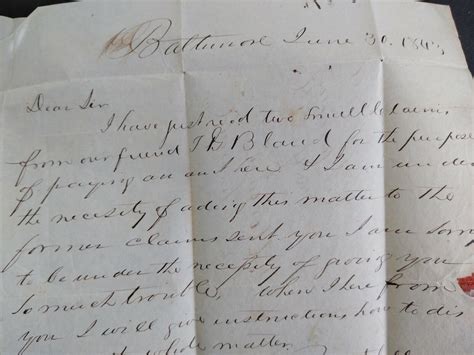 Baltimore June 30. 184
Dear Sir
I have just recd two small claims
from our friend T B Bland for the purpose
of paying an a/c here & I am under
the necesity of ading this matter to the
former claims sent you I am Sorry
to be under the necessity of giving you
So much trouble, when I here from
you I will give instructions how to dis
whole matter